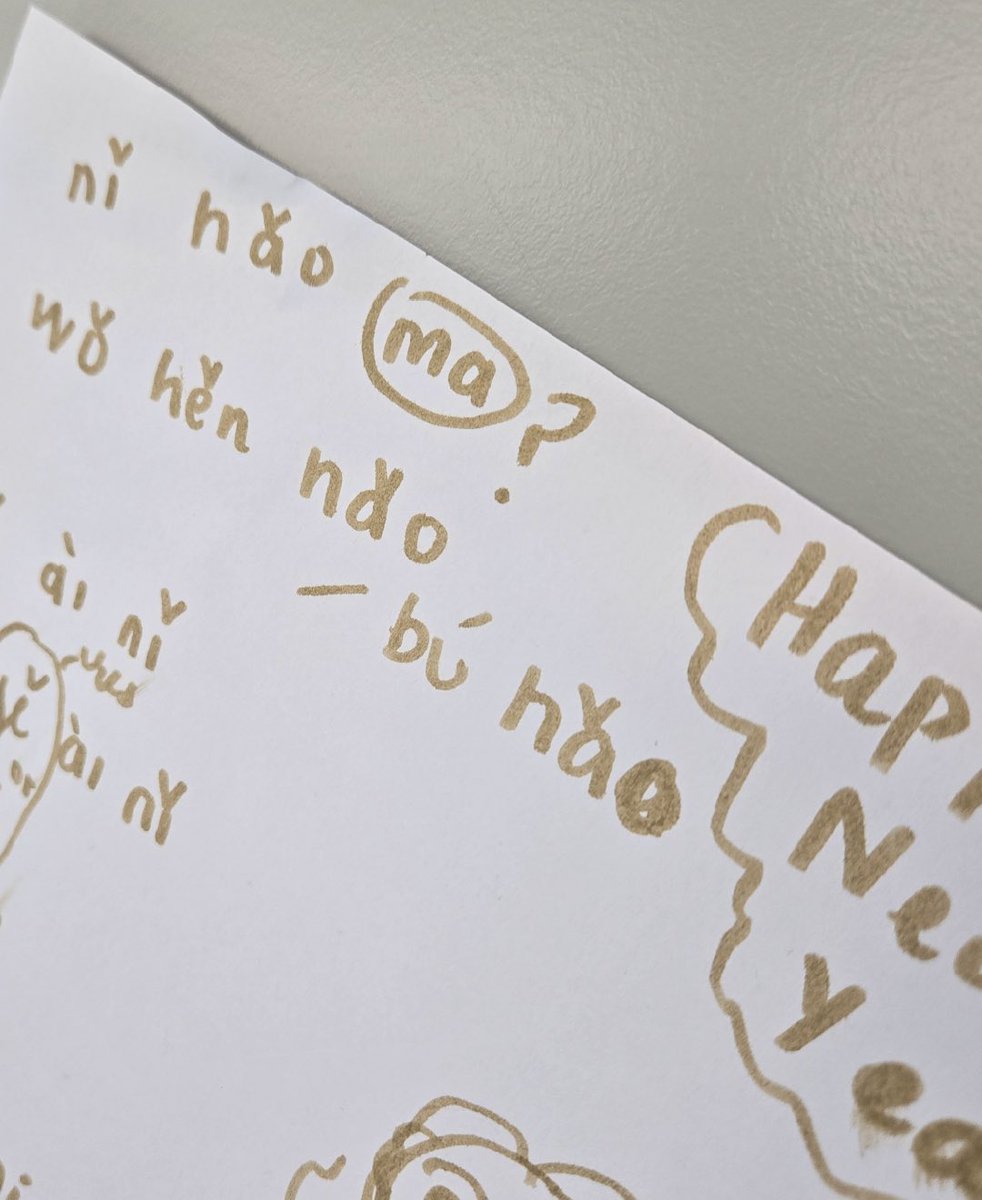 nǐ hǎo ma?
wǒ hěn hǎo
— bú hǎo
ài nǐ
ài nǐ
Hap
Ne
Yea